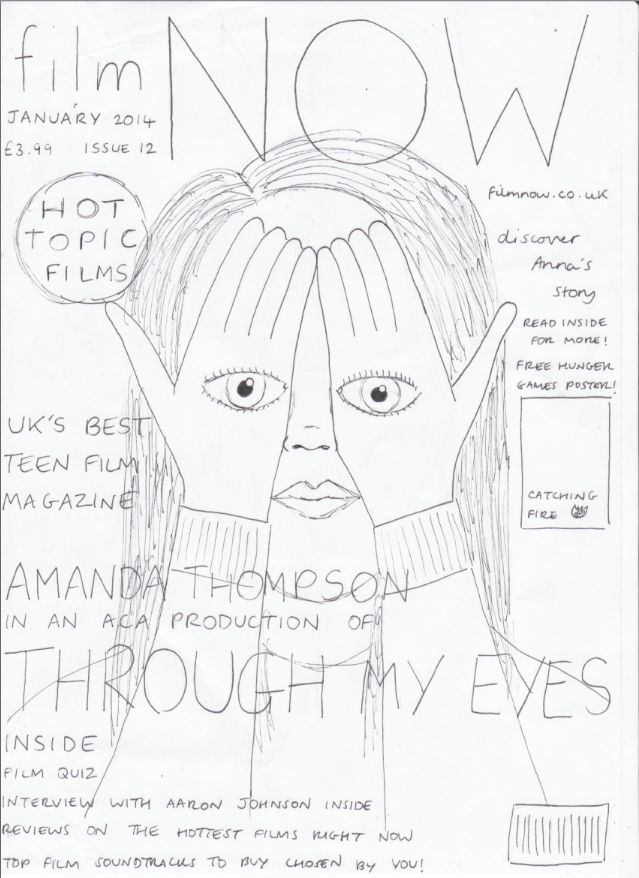 film NOW
JANUARY 2014
£3.99 ISSUE 12
HOT
TOPIC
FILMS
filmnow.co.uk
discover
Anna's
story
READ INSIDE
FOR MORE!
FREE HUNGER
GAMES POSTER!
CATCHING
FIRE
UK'S BEST
TEEN FILM
MAGAZINE
AMANDA THOMPSON
IN AN ACA PRODUCTION OF
THROUGH MY EYES
INSIDE
FILM QUIZ
INTERVIEW WITH AARON JOHNSON INSIDE
REVIEWS ON THE HOTTEST FILMS RIGHT NOW
TOP FILM SOUNDTRACKS TO BUY CHOSEN BY YOU!